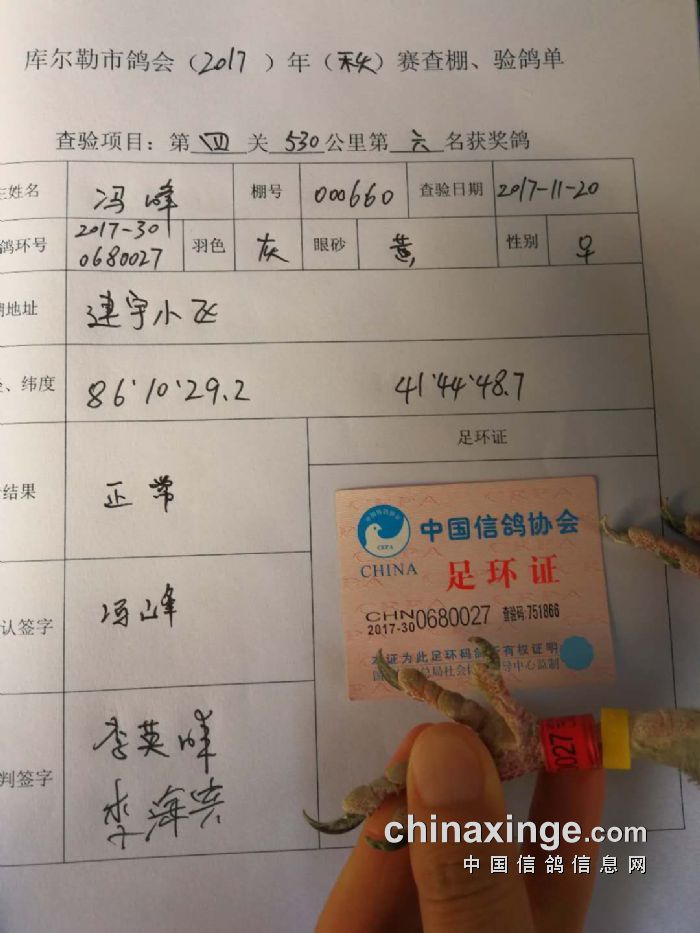 库尔勒市鸽会(2017)年(秋)赛查棚、验鸽单
查验项目:第四关530公里第六名获奖鸽
主姓名 冯峰 棚号 000660 查验日期 2017-11-20
鸽环号 2017-30 0680027 羽色 灰 眼砂 黄 性别 ♀
棚地址 建宇小区
、纬度 86°10'29.2 41°44'48.7
结果 正常 足环证
认签字 冯峰
判签字 李英峰
中国信鸽协会
CRPA
CHINA
足环证
CHN 2017-30 0680027 查验码:751866
本证为此足环码鸽 有权证明
国 总局社会体 导中心监制
0027
chinaxinge.com
中国信鸽信息网